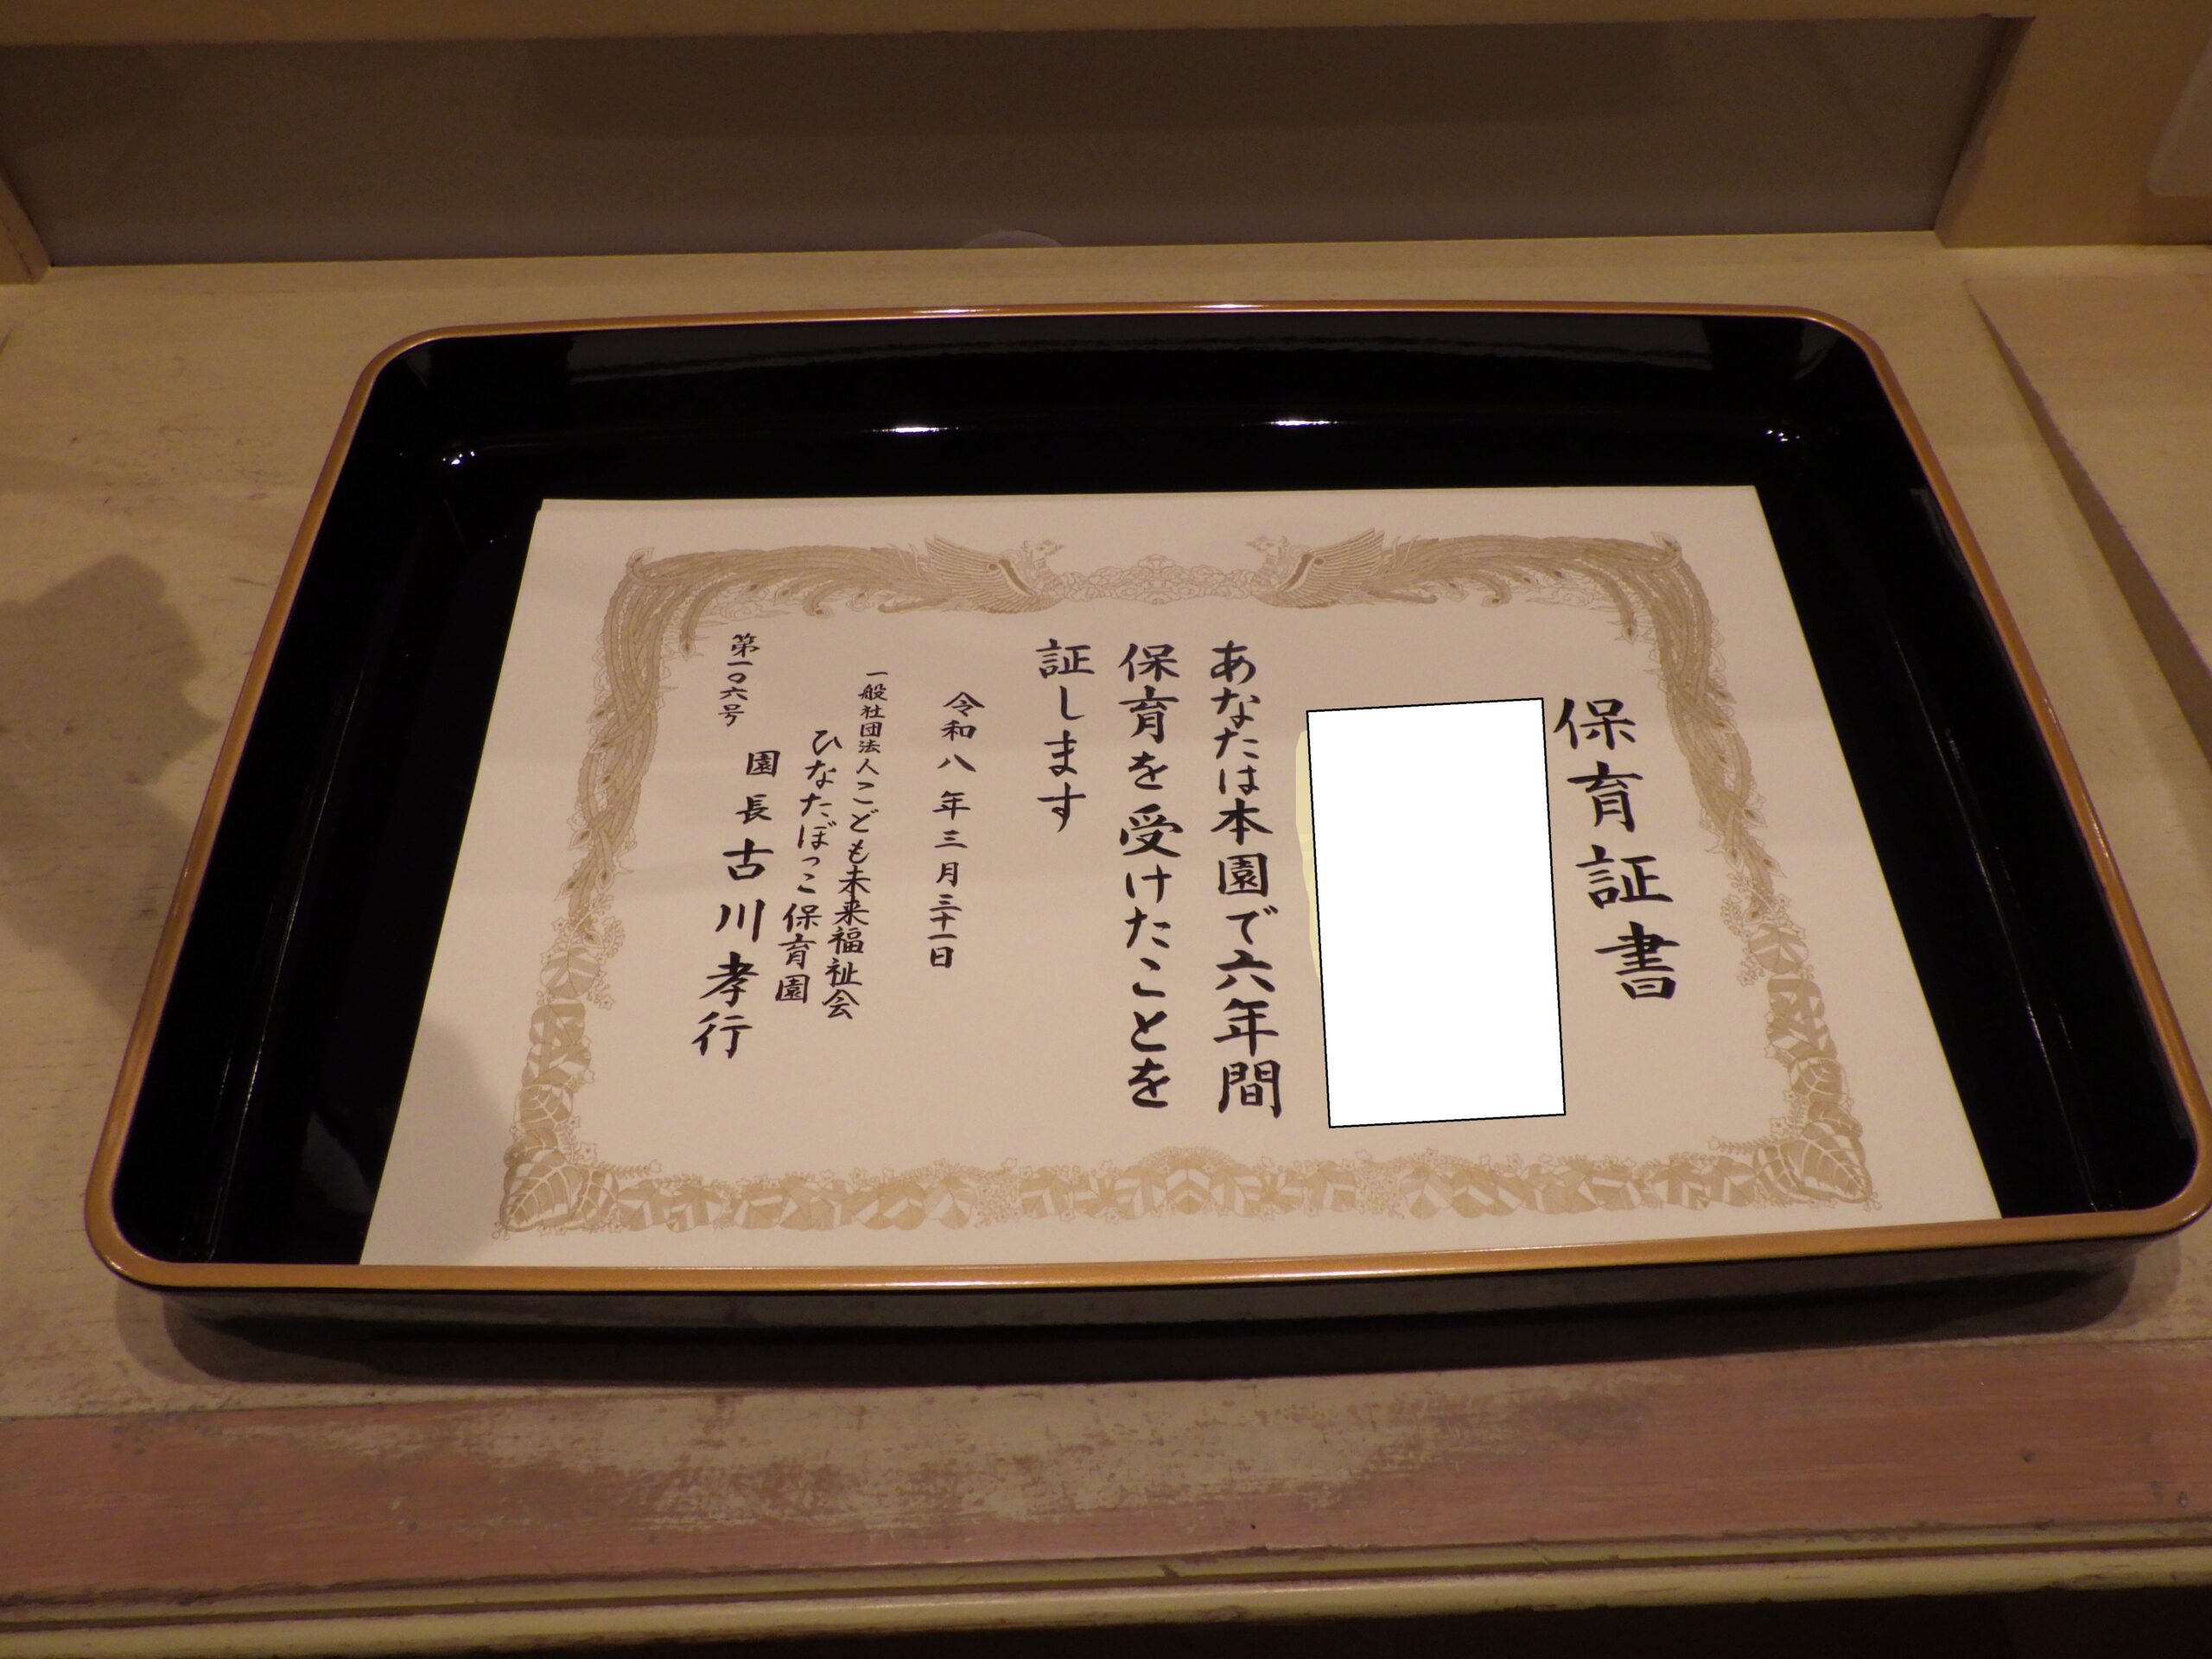 保育証書
あなたは本園で六年間
保育を受けたことを
証します
令和八年三月三十一日
一般社団法人こども未来福祉会
ひなたぼっこ保育園
園長古川孝行
第一〇六号